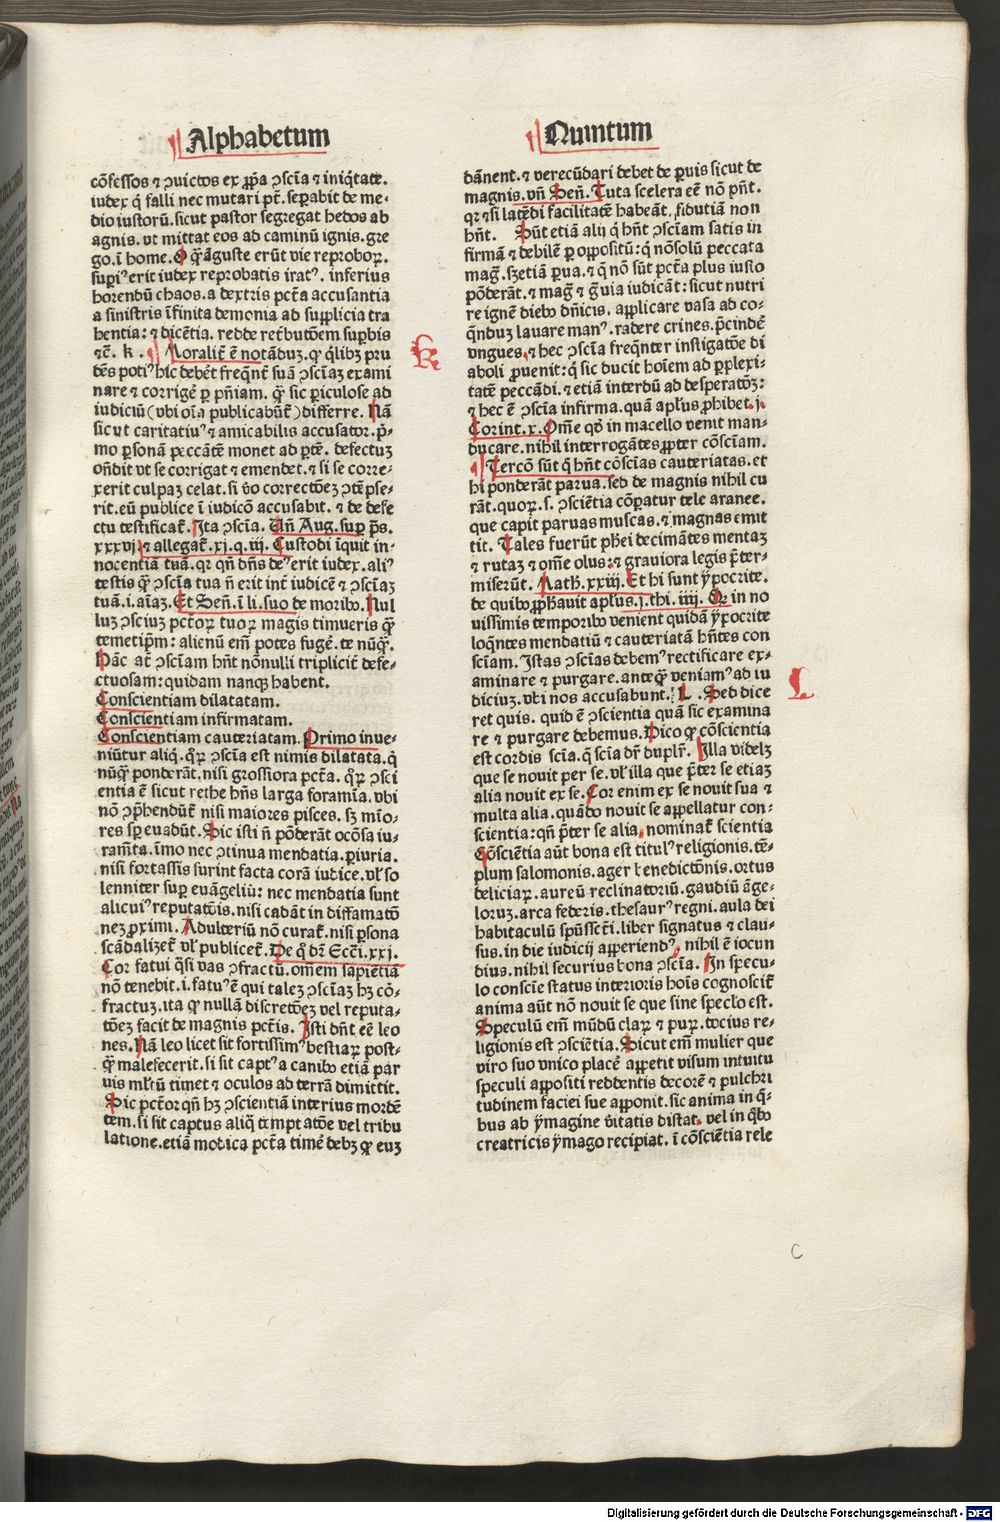 Alphabetum
cōfessos ⁊ ꝯuictos ex ꝓpa ꝯscīa ⁊ iniq̄tate.
iudex q̇ falli nec mutari pt̄. separabit de me-
dio iustorū. sicut pastor segregat hedos ab
agnis. vt mittat eos ad caminū ignis. gre
go. ī home. O q̄ʒ āguste erūt vie reproboꝝ.
supiꝰ erit iudex reprobatis iratꝰ. inferius
horendū chaos. a dextris pctā accusantia
a sinistris īfinita demonia ad supplicia tra
hentia: ⁊ dicētia. redde ret̄butōem supbis
⁊c̄. k . Moralit̄ ē notāduʒ. ꝙ q̄libʒ pru
dēs potiꝰ hic debēt freq̄nt̄ suā ꝯscīaʒ exami
nare ⁊ corrigē ꝑ pn̄iam. q̄ʒ sic piculose ad
iudiciū (vbi oīa publicabūt̄) differre. Nā
sicut caritatiuꝰ ⁊ amicabilis accusator. p̄-
mo psonā peccātē monet ad pte. defectuʒ
on̄dit vt se corrigat ⁊ emendet. ⁊ si se corre-
xerit culpaʒ celat. si v̇o correctōeʒ ꝯtēpse-
rit. eū publice ī iudicō accusabit. ⁊ de defe
ctu testificat̄. Ita ꝯscīa. Un̄ Aug. sup ps̄.
xxxvj. ⁊ allegat̄. xj. q. iij. Custodi īquit in-
nocentiā tuā. qꝛ qn̄ dn̄s deꝰ erit iudex. aliꝰ
testis q̄ʒ ꝯscīa tua n̄ erit int̄ iudicē ⁊ ꝯscīaʒ
tuā. i. aīaʒ. Et Sen̄. ī li. suo de moribꝰ. Nul
luʒ ꝯsciuʒ pctōꝝ tuoꝝ magis timueris q̄ʒ
temetipm̄: alienū em̄ potes fugē. te nūq̄ʒ.
Hāc at̄ ꝯscīam hn̄t nōnulli triplicit̄ defe-
ctuosam: quidam nanqʒ habent.
Conscientiam dilatatam.
Conscientiam infirmatam.
Conscientiam cauteriatam. Primo inue-
niūtur aliq̇. q̇ꝝ ꝯscīa est nimis dilatata. q̇
nūq̄ʒ ponderāt. nisi grossiora pctā. q̇ꝝ ꝯsci
entia ē sicut rethe hn̄s larga foramīa. vbi
nō ꝯphendūt̄ nisi maiores pisces. sʒ mīo-
res sp euadūt. Sic isti n̄ pōderāt ocōsa iu-
ram̄ta. īmo nec ꝯtinua mendatia. piuria.
nisi fortassis fuerint facta corā iudice. vl̄ so
lenniter sup euāgeliū: nec mendatia sunt
alicuiꝰ reputatōis. nisi cadāt in diffamatō
neʒ ꝓximi. Adulteriū nō curat̄. nisi psona
scādalizet̄ vl̄ publicet̄. De q̇ dr̄ Eccī. xxj.
Cor fatui q̄si vas ꝯfractū. omēm sapiētiā
nō tenebit. i. fatuꝰ ē qui taleʒ ꝯscīaʒ hʒ cō-
fractuʒ. ita ꝙ nullā discretōeʒ vel reputa-
tōeʒ facit de magnis pctīs. Isti dn̄t eē leo
nes. Nā leo licet sit fortissimꝰ bestiaꝝ post-
q̄ʒ malefecerit. si sit captꝰ a canibꝰ etiā par
uis ml̄tū timet ⁊ oculos ad terrā dimittit.
Sic pctōr qn̄ hʒ ꝯscientiā interius mordē
tem. si sit captus aliq̄ tēptatōe vel tribu
latione. etiā modica pctā timē debʒ ꝙ euʒ
k
Quintum
dānent. ⁊ verecūdari debet de puis sicut de
magnis. vn̄ Sen̄. Tuta scelera eē nō pn̄t.
qꝛ ⁊ si latēdi facilitatē habeāt. fidutiā non
hn̄t. Sūt etiā alij q̇ hn̄t ꝯscīam satis in
firmā ⁊ debilē ꝑ oppositū: q̇ nōsolū peccata
mag̃. sʒ etiā pua. ⁊ q̇ nō sūt pctā plus iusto
pōderāt. ⁊ mag̃ ⁊ g̃uia iudicāt: sicut nutri
re ignē diebꝰ dn̄icis. applicare vasa ad co-
q̄nduʒ lauare manꝰ. radere crines. p̄cindē
vngues. ⁊ hec ꝯscīa freq̄nter instigatōe di
aboli ꝓuenit: q̇ sic ducit hoīem ad pplexi-
tatē peccādi. ⁊ etiā interdū ad desperatōʒ:
⁊ hec ē ꝯscīa infirma. quā apl̄us ꝓhibet. j.
Corint. x. Om̄e qd̄ in macello venit man-
ducare. nihil interrogātes ꝓpter cōscīam.
Tercō sūt q̇ hn̄t cōscīas cauteriatas. et
hi ponderāt parua. sed de magnis nihil cu
rāt. quoꝝ. s. ꝯsciētia cōpatur tele aranee.
que capit paruas muscas. ⁊ magnas emit
tit. Tales fuerūt phēi decimātes mentaʒ
⁊ rutaʒ ⁊ om̄e olus: ⁊ grauiora legis p̄ter-
miserūt. Math. xxiij. Et hi sunt ypocrite.
de quibꝰ ꝓph̄auit apl̄us. j. thi. iiij. Qꝛ in no
uissimis temporibꝰ venient quidā ypocrite
loq̄ntes mendatiū ⁊ cauteriatā hn̄tes con
scīam. Istas ꝯscīas debemꝰ rectificare ex-
aminare ⁊ purgare. anteq̄ʒ veniamꝰ ad iu
diciuʒ. vbi nos accusabunt. L . Sed dice
ret quis. quid ē ꝯscientia quā sic examina
re ⁊ purgare debemus. Dico ꝙ cōscientia
est cordis scīa. q̄ scīa dr̄ duplr̄. Illa videlʒ
que se nouit per se. vl̄ illa que p̄ter se etiaʒ
alia nouit ex se. Cor enim ex se nouit sua ⁊
multa alia. quādo nouit se appellatur con-
scientia: qn̄ p̄ter se alia. nominat̄ scientia
Cōsciētia aūt bona est titulꝰ religionis. tē-
plum salomonis. ager benedictōnis. ortus
deliciaꝝ. aureū reclinatoriū. gaudiū āge-
loruʒ. arca federis. thesaurꝰ regni. aula dei
habitaculū spūsscti. liber signatus ⁊ clau-
sus. in die iudicij apperiendꝰ. nihil ē iocun
dius. nihil securius bona ꝯscīa. In specu-
lo consciē status interioris hoīs cognoscit̄
anima aūt nō nouit se que sine speclo est.
Speculū em̄ mūdū claꝝ ⁊ puꝝ. tocius re-
ligionis est ꝯsciētia. Sicut em̄ mulier que
viro suo vnico placē appetit visum intuitu
speculi appositi reddentis decorē ⁊ pulchri
tudinem faciei sue apponit. sic anima in q̄-
bus ab ymagine v̇itatis distat. vel in q̇bꝰ
creatricis ymago recipiat. ī cōsciētia rele
L
C
Digitalisierung gefördert durch die Deutsche Forschungsgemeinschaft - DFG